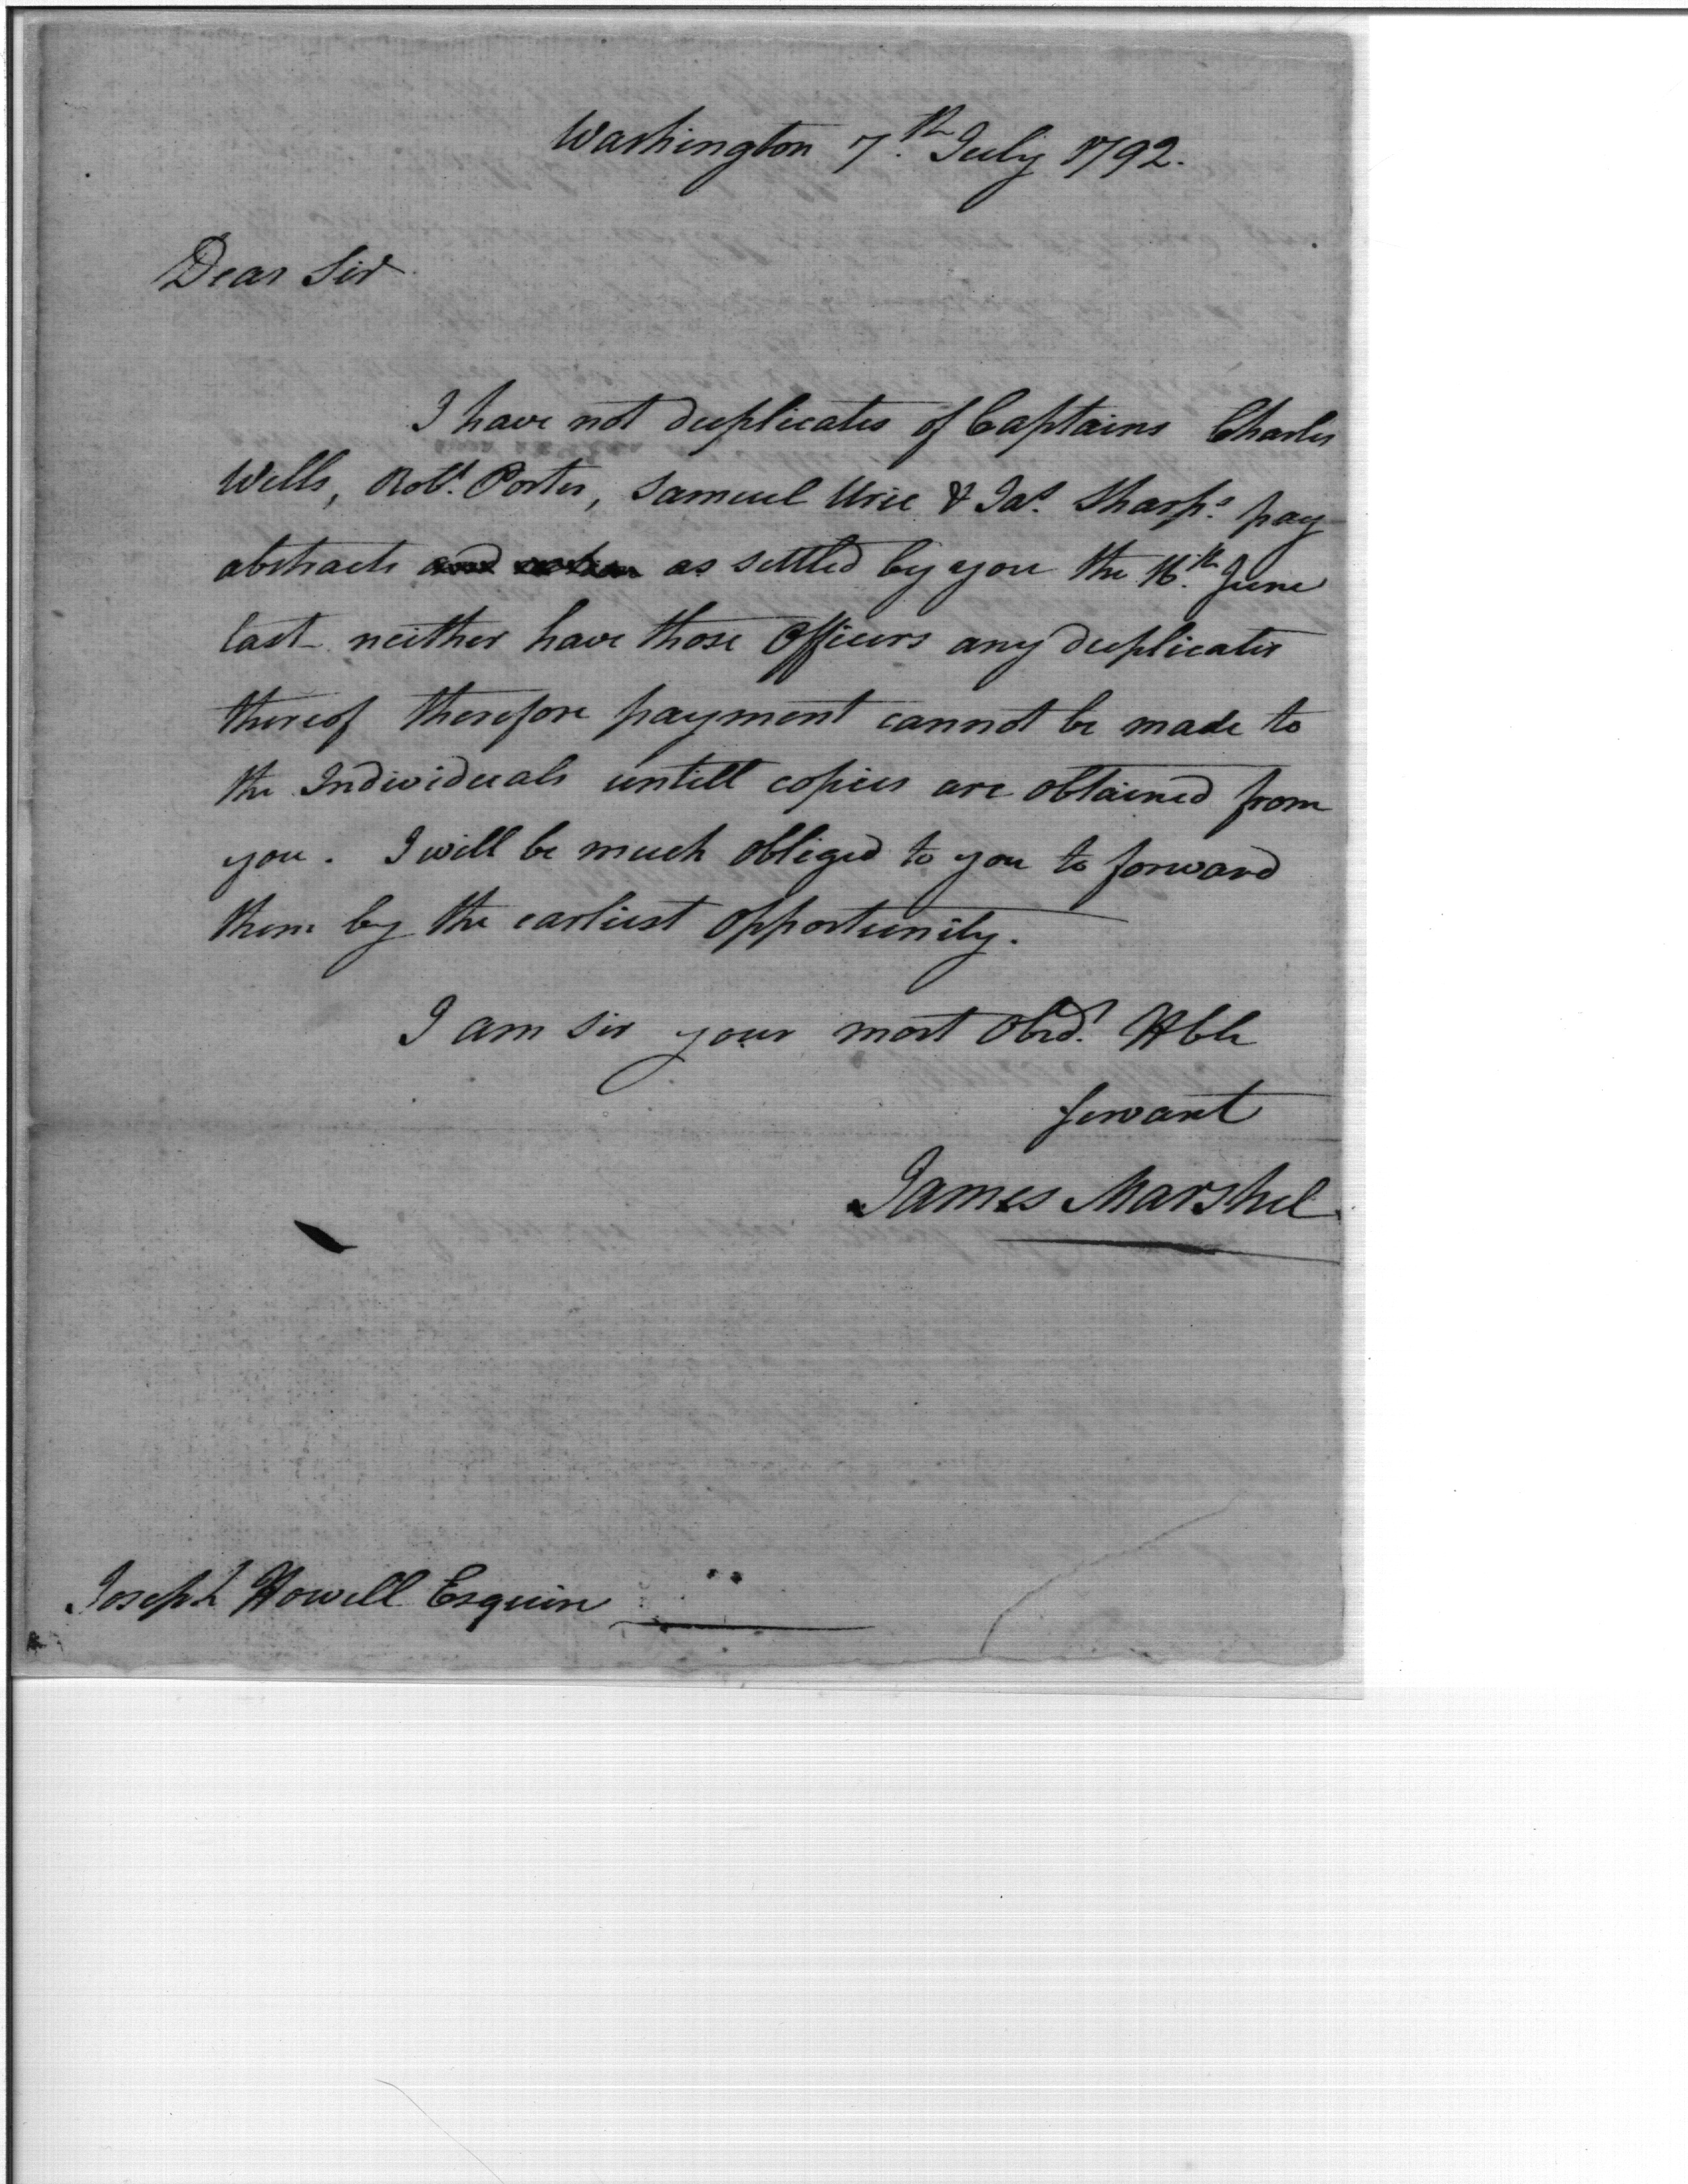 Washington 7.th July 1792.
Dear Sir
I have not duplicates of Captains Charles
Wells, Robt. Porter, Samuel Urie & Jas. Sharps. pay
abstracts as settled by you the 16.th June
last neither have those Officers any duplicates
thereof therefore payment cannot be made to
the Individuals untill copies are obtained from
you. I will be much obliged to you to forward
them by the earliest opportunity.
I am Sir your most Obedt. Hble
Servant
James Marshel
Joseph Howell Esquire